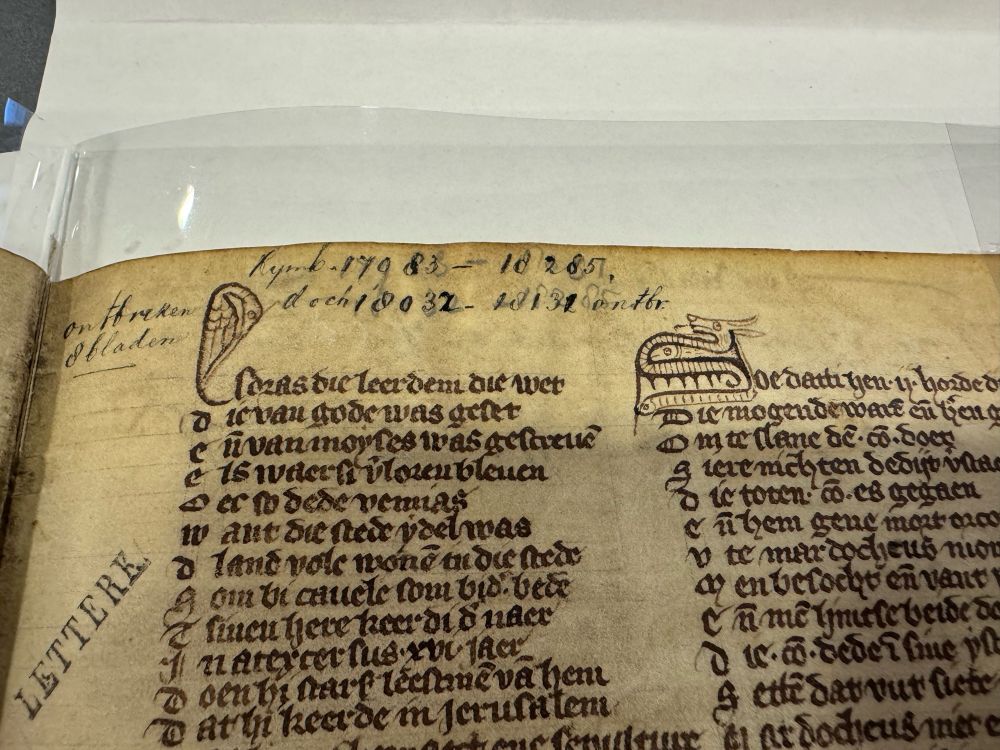 Rymb. 17983 — 18285.
doch 18032 — 18131 ontbr.
ontbreken
8 bladen
LETTERE
Esdras die leerdem die wet
die van gode was geset
eñ van moyses was gescreuē
els waersi v̄loren bleuen
Oec so dede neemias
want die stede ydel was
dland volc wonē in die stede
Som bi cauele som bid' bede
Tsinen here keerdi d'naer
In atexcersus .xvi. jaer
Doen hi starf leestmē vā hem
Dat hi keerde in jerusalem
sepulture
Hoe datti hen .ij. horde
Die mogende warē eñ
Om te slane dē .cō. doer
Siere nichten dedijt
die toten .cō. es gegaen
eñ hem geue
vte mardocheus
Men besocht eñ vant
Eñ mē hincse beide
die .cō. dede ī sine
Settē dat vut siete
Mardocheus niet